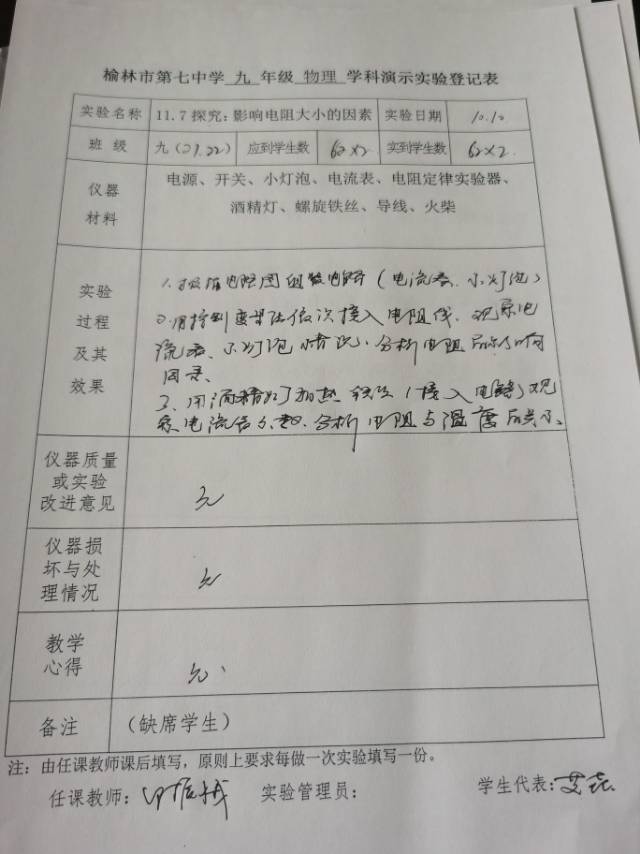 榆林市第七中学 九 年级 物理 学科演示实验登记表
实验名称 11.7 探究:影响电阻大小的因素 实验日期 10.10
班 级 九(21.22) 应到学生数 62×2 实到学生数 62×2.
仪器
材料
电源、开关、小灯泡、电流表、电阻定律实验器、
酒精灯、螺旋铁丝、导线、火柴
实验
过程
及其
效果
1、根据电路图组装电路(电流表、小灯泡)
2.用控制变量法依次接入电阻线、观察电
流表、小灯泡情况、分析电阻的影响
因素、
3、用酒精灯加热铁丝(接入电路)观
察电流表示数、分析电阻与温度的关系、
仪器质量
或实验
改进意见
无
仪器损
坏与处
理情况
无
教学
心得
无、
备注 (缺席学生)
注:由任课教师课后填写,原则上要求每做一次实验填写一份。
任课教师: 实验管理员: 学生代表:艾